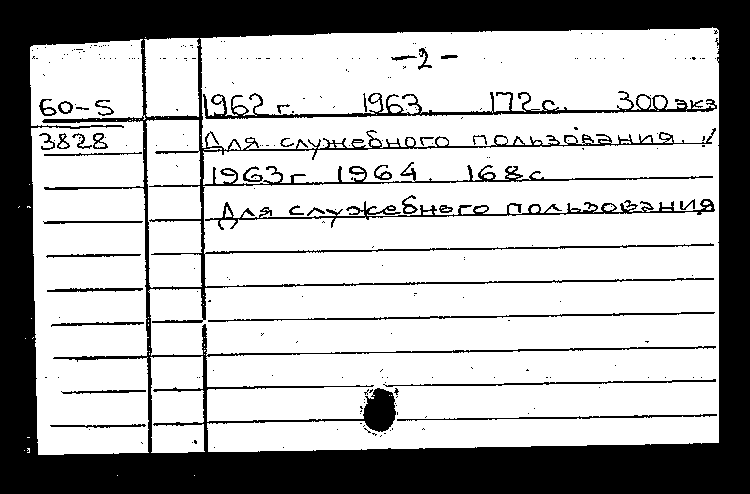 —2—
60-5 1962 г. 1963. 172 с. 300 экз
3828 Для служебного пользования. √
1963 г 1964. 168 с
Для служебного пользования